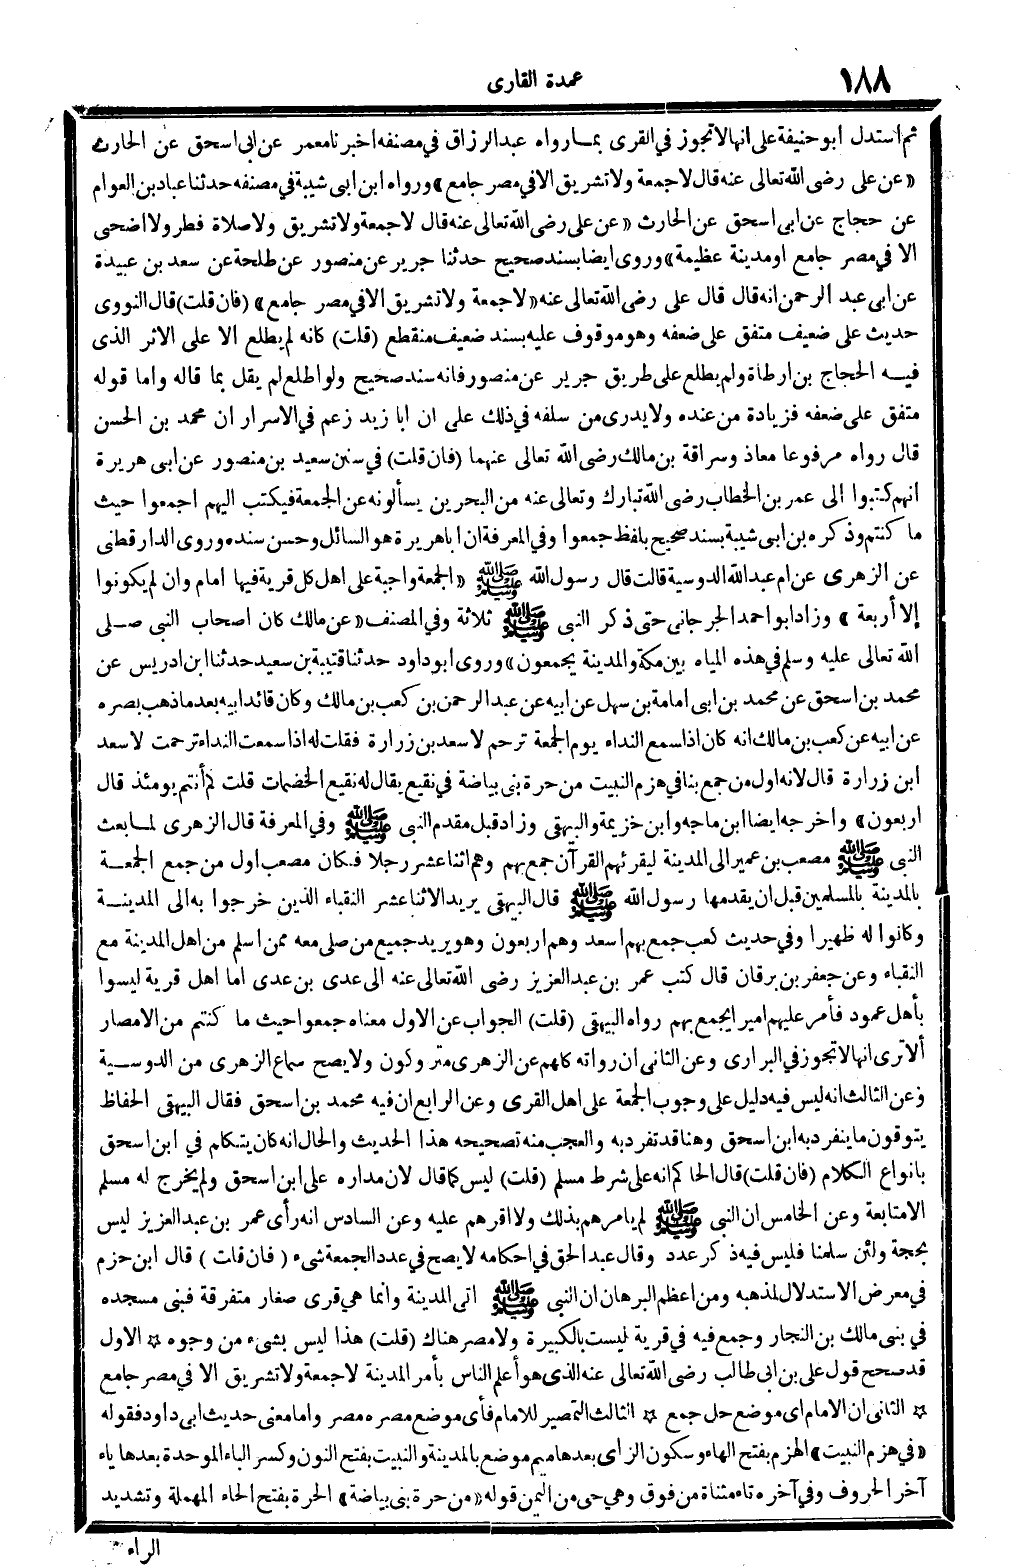 ١٨٨
عمدة القارى
ثم استدل ابو حنيفة على انها لا تجوز في القرى بما رواه عبد الرزاق في مصنفه اخبرنا معمر عن ابى اسحق عن الحارث
«عن على رضى الله تعالى عنه قال لا جمعة ولا تشريق الا في مصر جامع» ورواه ابن ابى شيبة في مصنفه حدثنا عباد بن العوام
عن حجاج عن ابى اسحق عن الحارث «عن على رضى الله تعالى عنه قال لا جمعة ولا تشريق ولا صلاة فطر ولا اضحى
الا في مصر جامع او مدينة عظيمة» وروى ايضا بسند صحيح حدثنا جرير عن منصور عن طلحة عن سعد بن عبيدة
عن ابى عبد الرحمن انه قال قال على رضى الله تعالى عنه «لا جمعة ولا تشريق الا في مصر جامع» (فان قلت) قال النووى
حديث على ضعيف متفق على ضعفه وهو موقوف عليه بسند ضعيف منقطع (قلت) كانه لم يطلع الا على الاثر الذى
فيه الحجاج بن ارطاة ولم يطلع على طريق جرير عن منصور فانه سند صحيح ولو اطلع لم يقل بما قاله واما قوله
متفق على ضعفه فزيادة من عنده ولا يدرى من سلفه في ذلك على ان ابا زيد زعم في الاسرار ان محمد بن الحسن
قال رواه مرفوعا معاذ وسراقة بن مالك رضى الله تعالى عنهما (فان قلت) في سنن سعيد بن منصور عن ابى هريرة
انهم كتبوا الى عمر بن الخطاب رضى الله تبارك وتعالى عنه من البحرين يسألونه عن الجمعة فيكتب اليهم اجمعوا حيث
ما كنتم وذكره بن ابى شيبة بسند صحيح بلفظ جمعوا وفي المعرفة ان ابا هريرة هو السائل وحسن سنده وروى الدارقطنى
عن الزهرى عن ام عبد الله الدوسية قالت قال رسول الله ﷺ «الجمعة واجبة على اهل كل قرية فيها امام وان لم يكونوا
إلا أربعة» وزاد ابو احمد الجرجانى حتى ذكر النبى ﷺ ثلاثة وفي المصنف «عن مالك كان اصحاب النبى صلى
الله تعالى عليه وسلم في هذه المياه بين مكة والمدينة يجمعون» وروى ابو داود حدثنا قتيبة بن سعيد حدثنا ابن ادريس عن
محمد بن اسحق عن محمد بن ابى امامة بن سهل عن ابيه عن عبد الرحمن بن كعب بن مالك وكان قائد ابيه بعد ما ذهب بصره
عن ابيه عن كعب بن مالك انه كان اذا سمع النداء يوم الجمعة ترحم لاسعد بن زرارة فقلت له اذا سمعت النداء ترحمت لاسعد
ابن زرارة قال لانه اول من جمع بنا في هزم النبيت من حرة بنى بياضة في نقيع يقال له نقيع الخضمات قلت كم أنتم يومئذ قال
اربعون» واخرجه ايضا ابن ماجه وابن خزيمة والبيهقى وزاد قبل مقدم النبى ﷺ وفي المعرفة قال الزهرى لما بعث
النبى ﷺ مصعب بن عمير الى المدينة ليقرئهم القرآن جمع بهم وهم اثنا عشر رجلا فكان مصعب اول من جمع الجمعة
بالمدينة بالمسلمين قبل ان يقدمها رسول الله ﷺ قال البيهقى يريد الاثنا عشر النقباء الذين خرجوا به الى المدينة
وكانوا له ظهيرا وفي حديث كعب جمع بهم اسعد وهم اربعون وهو يريد جميع من صلى معه ممن اسلم من اهل المدينة مع
النقباء وعن جعفر بن برقان قال كتب عمر بن عبد العزيز رضى الله تعالى عنه الى عدى بن عدى اما اهل قرية ليسوا
بأهل عمود فأمر عليهم اميرا يجمع بهم رواه البيهقى (قلت) الجواب عن الاول معناه جمعوا حيث ما كنتم من الامصار
ألا ترى انها لا تجوز في البرارى وعن الثانى ان رواته كلهم عن الزهرى متروكون ولا يصح سماع الزهرى من الدوسية
وعن الثالث انه ليس فيه دليل على وجوب الجمعة على اهل القرى وعن الرابع ان فيه محمد بن اسحق فقال البيهقى الحفاظ
يتوقون ما ينفرد به ابن اسحق وهنا قد تفرد به والعجب منه تصحيحه هذا الحديث والحال انه كان يتكلم في ابن اسحق
بانواع الكلام (فان قلت) قال الحاكم انه على شرط مسلم (قلت) ليس كما قال لان مداره على ابن اسحق ولم يخرج له مسلم
الا متابعة وعن الخامس ان النبى ﷺ لم يامرهم بذلك ولا اقرهم عليه وعن السادس انه رأى عمر بن عبد العزيز ليس
بحجة ولئن سلمنا فليس فيه ذكر عدد وقال عبد الحق في احكامه لا يصح في عدد الجمعة شىء (فان قلت) قال ابن حزم
في معرض الاستدلال لمذهبه ومن اعظم البرهان ان النبى ﷺ اتى المدينة وانما هي قرى صغار متفرقة فبنى مسجده
في بنى مالك بن النجار وجمع فيه في قرية ليست بالكبيرة ولا مصر هناك (قلت) هذا ليس بشىء من وجوه ☆ الاول
قد صحح قول على بن ابى طالب رضى الله تعالى عنه الذى هو أعلم الناس بأمر المدينة لا جمعة ولا تشريق الا في مصر جامع
☆ الثانى ان الامام اى موضع حل جمع ☆ الثالث التمصير للامام فأى موضع مصره مصر واما معنى حديث ابى داود فقوله
«في هزم النبيت» الهزم بفتح الهاء وسكون الزاى بعدها ميم موضع بالمدينة والنبيت بفتح النون وكسر الباء الموحدة بعدها ياء
آخر الحروف وفي آخره تاء مثناة من فوق وهي حى من اليمن قوله «من حرة بنى بياضة» الحرة بفتح الحاء المهملة وتشديد
الراء